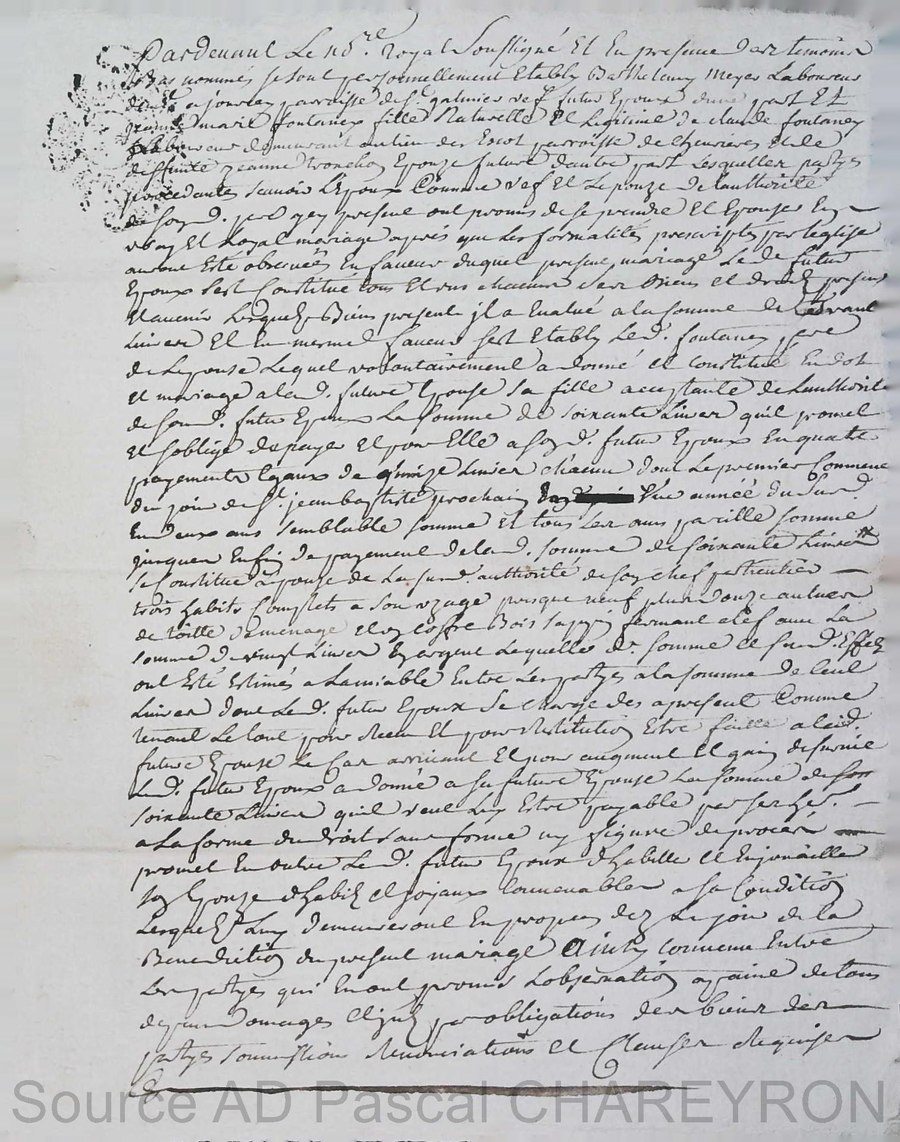 Pardevant Le no.re Royal Soussigné Et En presence des temoins
bas nommes se sont personnellement Etably Barthelemy Meyer Laboureur
parroisse de St. galmier vef futur Epoux dune part Et
marie fontaney fille Naturelle Et Legitime de claude fontaney
Laboureur demeurant au lieu des parroisse de chevrieres et de
deffunte jeanne tronchon Epouze future dautre part Lesquelles partyes
procedantes scavoir L'Epoux Comme vef Et Lepouze de Lauthorité
de soy d. pere icy present ont promis de se prendre Et Epouser En
vray Et Loyal mariage aprés que Les formalités prescriptes par Leglise
auront Esté observées En faveur duquel presént mariage Le d. futur
Epoux sest Constitué tous Et uns chacuns ses Biens et droits presens
Et avenir Lesquels Biens presents il a Evalué a la somme de
Livres Et En mesme faveur sest Etably Le d. fontaney pere
de Lepouse Lequel volontairement a donné et constitué En dot
et mariage a la d. future Epouse sa fille acceptante de Lauthorité
de son d. futur Epoux La somme de soixante Livres quil promet
et soblige de payer Et pour Elle a son d. futur Epoux En quatre
payements Egaux de quinze Livres chacun dont Le premier Commence
du jour de St. jean baptiste prochain une année du jour d.
En deux ans semblable somme Et tous les ans pareille somme
jusques Enfin de payement de la d. somme de soixante Livres
se Constitue Lepouse de La sus d. authorité de son chef particulier
trois habits Complets a son uzage presque neuf plus onze aulnes
de toille de menage et un coffre Bois sappin fermant a clef avec La
somme de vingt Livres En argent Lesquelles d. somme et sus d. Effets
ont Esté Estimés a Lamiable Entre Les partyes a la somme de Cent
Livres dont Le d. futur Epoux se charge des apresent Comme
tenant Le tout pour Receu Et pour Restitution Estre faitte a la d.
future Epouse Le Cas arrivant Et pour augment Et gain de survie
Le d. futur Epoux a donné a sa future Epouse La somme de
soixante Livres quil veut Luy Estre payable par ses hers.
a La forme du droit sans forme ny figure de procès
promet En outre Le d. futur Epoux dhabille et Enjouailler
soy Epouse dhabits et joyaux Convenables a sa Condition
Lesquels Luy demeureront En propres dez Le jour de la
Benediction du present mariage Ainsy convenu Entre
Les partyes qui En ont promis Lobservation a paine de tous
depens domages Et interests par obligations des biens des
partyes soumission Renonciations et Clauses Requises
Source AD Pascal CHAREYRON